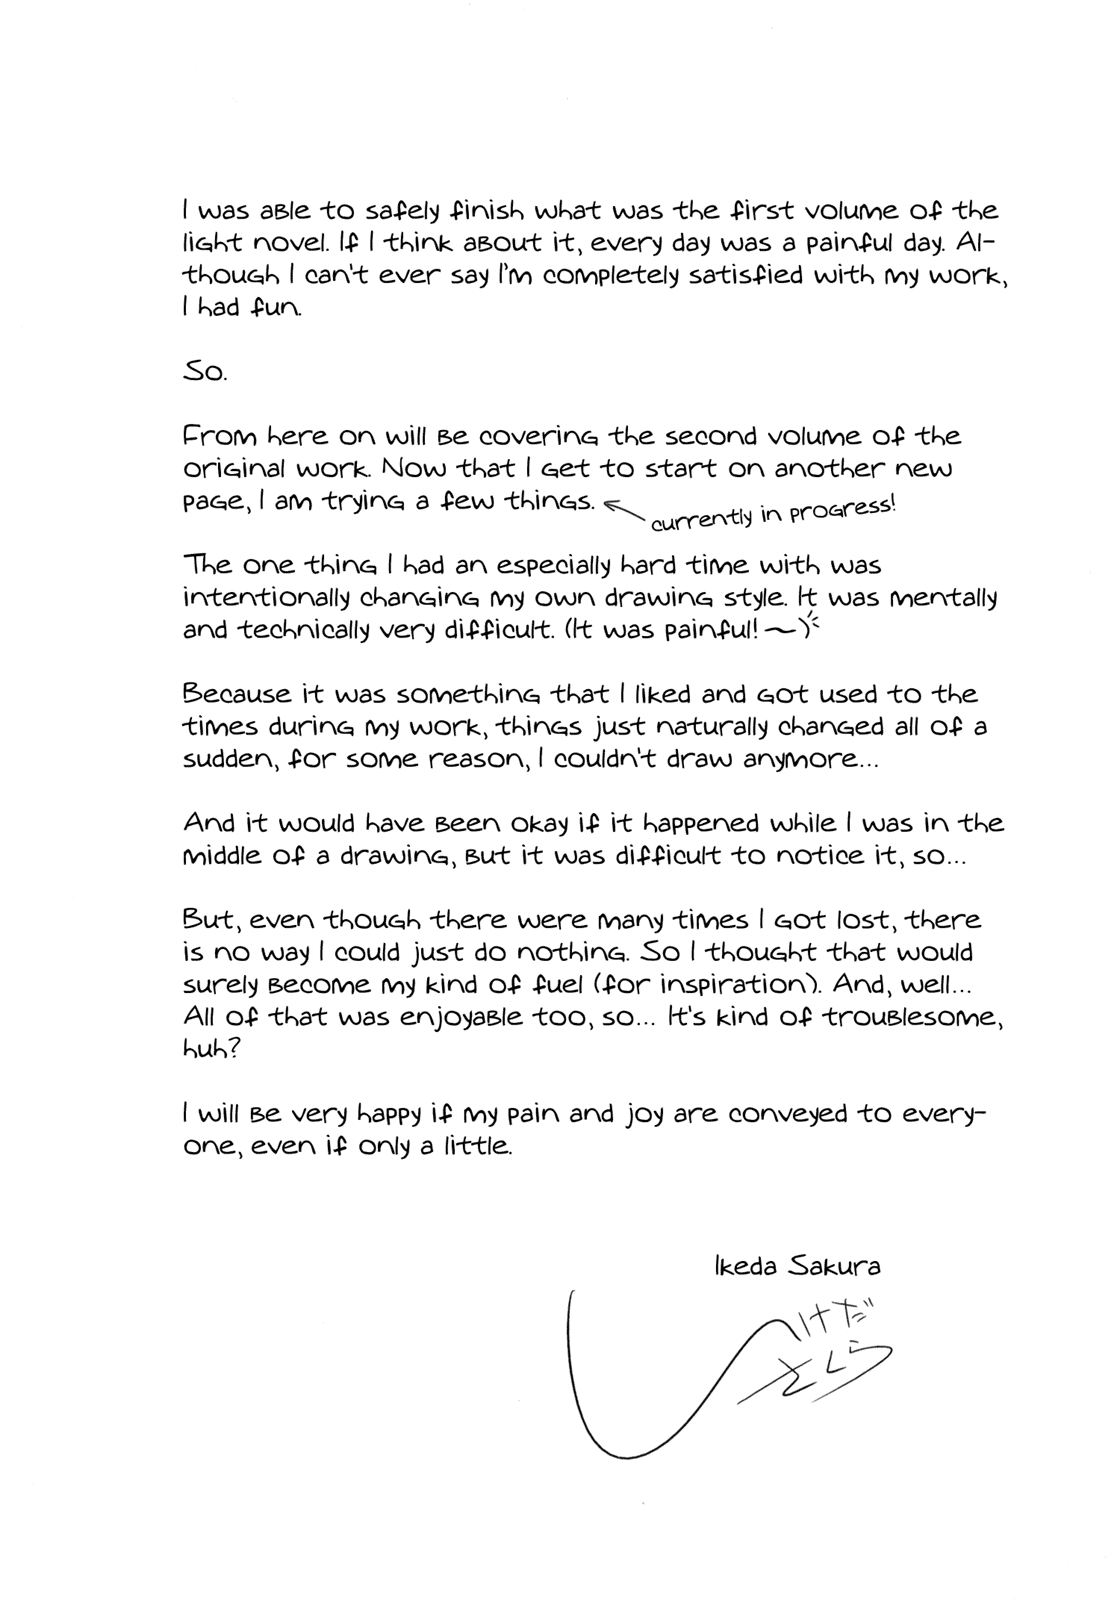 I was able to safely finish what was the first volume of the
light novel. If I think about it, every day was a painful day. Al-
though I can't ever say I'm completely satisfied with my work,
I had fun.
So.
From here on will be covering the second volume of the
original work. Now that I get to start on another new
page, I am trying a few things.
currently in progress!
The one thing I had an especially hard time with was
intentionally changing my own drawing style. It was mentally
and technically very difficult. (It was painful!~)
Because it was something that I liked and got used to the
times during my work, things just naturally changed all of a
sudden, for some reason, I couldn't draw anymore...
And it would have been okay if it happened while I was in the
middle of a drawing, but it was difficult to notice it, so...
But, even though there were many times I got lost, there
is no way I could just do nothing. So I thought that would
surely become my kind of fuel (for inspiration). And, well...
All of that was enjoyable too, so... It's kind of troublesome,
huh?
I will be very happy if my pain and joy are conveyed to every-
one, even if only a little.
Ikeda Sakura
いけだ
さくら